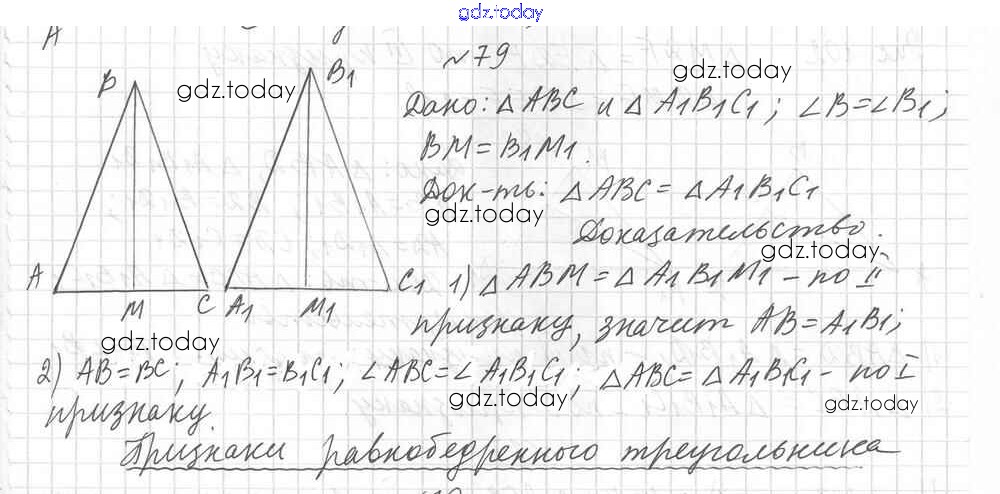 gdz.today
A
№79
B
B1
gdz.today
gdz.today
Дано: △ ABC и △ A1B1C1; ∠B=∠B1;
BM = B1M1.
Док-ть: △ ABC = △ A1B1C1
gdz.today
Доказательство.
gdz.today
A
M
C
A1
M1
C1
1) △ ABM = △ A1B1M1 – по II
признаку, значит AB = A1B1;
gdz.today
2) AB = BC; A1B1 = B1C1; ∠ABC = ∠A1B1C1; △ABC = △A1B1C1 – по I
признаку.
gdz.today
gdz.today
Признаки равнобедренного треугольника